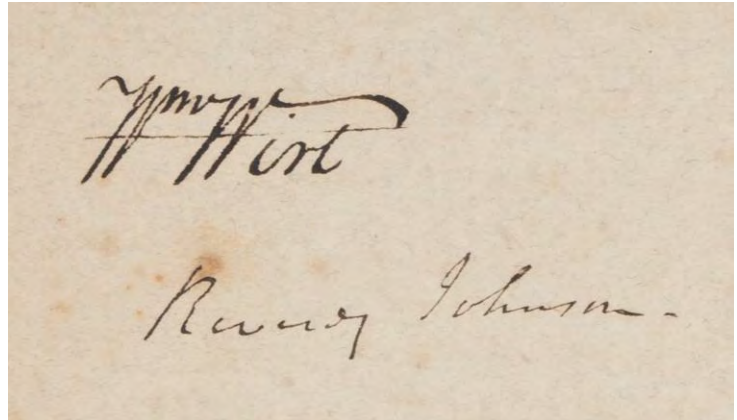 Wm Wirt
Reverdy Johnson.